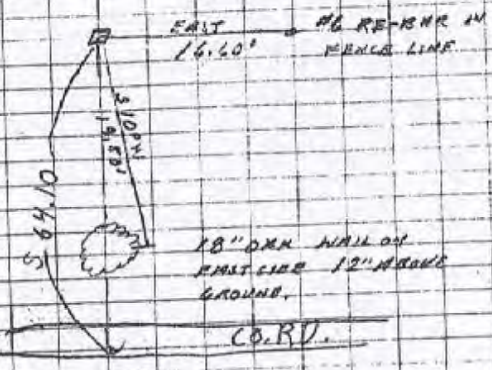 EAST
16.60'
#6 RE-BAR IN
FENCE LINE
S10°W
19.50'
S 64.10
18" OAK NAIL ON
EAST SIDE 12" ABOVE
GROUND.
CO. RD.